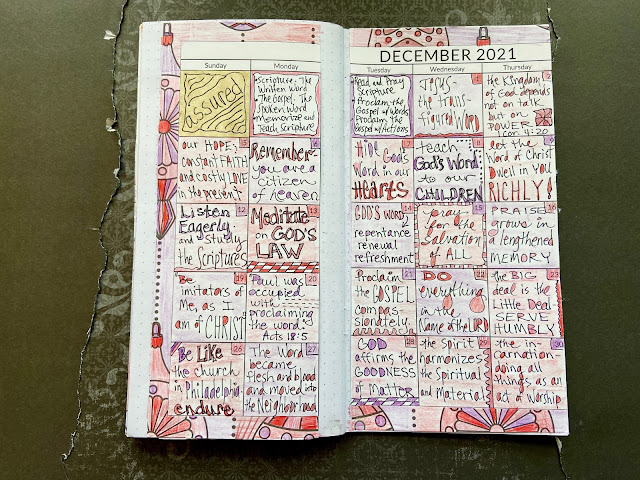 Sunday
Monday
assured
• Scripture: The
Written Word
• The Gospel: The
Spoken Word
• Memorize and
Teach Scripture
5
our HOPE;
constant FAITH
and costly LOVE
in the present
6
Remember-
you are a
citizen of
Heaven
12
Listen
Eagerly
and study
the Scriptures
13
Meditate
on GOD'S
LAW
19
Be
imitators of
Me, as I
am of CHRIST
20
Paul was
occupied
with
proclaiming
the word.
Acts 18:5
26
Be Like
the church
in Philadelphia
endure
27
The Word
became
flesh and blood
and moved into
the Neighborhood
DECEMBER 2021
Tuesday
Wednesday
Thursday
Read and Pray
Scripture
Proclaim the
Gospel w/Words
Proclaim the
Gospel w/Actions
1
Jesus-
the trans-
figured Word
2
the Kingdom
of God depends
not on talk
but on
POWER
1 Cor. 4:20
7
HIDE God's
Word in our
Hearts
8
teach
God's Word
to our
CHILDREN
9
let the
Word of Christ
Dwell in you
RICHLY!
14
GOD'S WORD
repentance
renewal
refreshment
15
pray
for the
Salvation
of ALL
16
PRAISE
grows in
a lengthened
MEMORY
21
Proclaim
the GOSPEL
compas-
sionately
22
DO
everything
in the
Name of the LORD
23
the BIG
deal is the
Little Deal-
SERVE
HUMBLY
28
GOD
affirms the
GOODNESS
of Matter
29
the Spirit
harmonizes
the Spiritual
and Material
30
the in-
carnation-
doing all
things as an
act of Worship